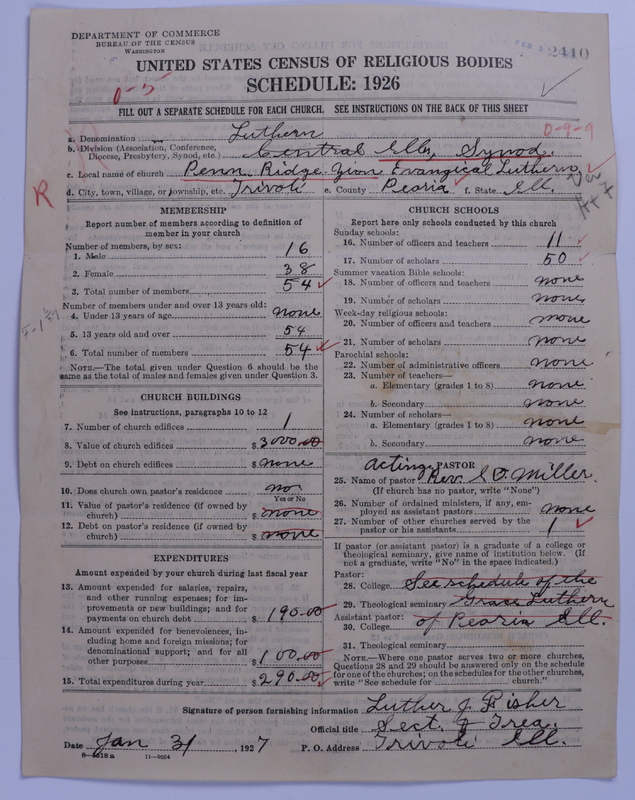 DEPARTMENT OF COMMERCE
BUREAU OF THE CENSUS
WASHINGTON
2410
UNITED STATES CENSUS OF RELIGIOUS BODIES
SCHEDULE: 1926
0-5
FILL OUT A SEPARATE SCHEDULE FOR EACH CHURCH. SEE INSTRUCTIONS ON THE BACK OF THIS SHEET
a. Denomination Luthern
0-9-9
b. Division (Association, Conference, Diocese, Presbytery, Synod, etc.) Central Ills, Synod.
c. Local name of church Penn. Ridge, Zion Evangelical Luthern
d. City, town, village, or township, etc. Trivoli e. County Peoria f. State Ill.
R
MEMBERSHIP
Report number of members according to definition of
member in your church
Number of members, by sex:
1. Male 16
2. Female 38
3. Total number of members 54
Number of members under and over 13 years old:
4. Under 13 years of age none
5. 13 years old and over 54
6. Total number of members 54
NOTE.—The total given under Question 6 should be the
same as the total of males and females given under Question 3.
CHURCH BUILDINGS
See instructions, paragraphs 10 to 12
7. Number of church edifices 1
8. Value of church edifices $3000.00
9. Debt on church edifices $ none
10. Does church own pastor's residence no
Yes or No
11. Value of pastor's residence (if owned by
church) $ none
12. Debt on pastor's residence (if owned by
church) $ none
EXPENDITURES
Amount expended by your church during last fiscal year
13. Amount expended for salaries, repairs,
and other running expenses; for im-
provements or new buildings; and for
payments on church debt $190.00
14. Amount expended for benevolences, in-
cluding home and foreign missions; for
denominational support; and for all
other purposes $100.00
15. Total expenditures during year $290.00
CHURCH SCHOOLS
Report here only schools conducted by this church
Sunday schools:
16. Number of officers and teachers 11
17. Number of scholars 50
Summer vacation Bible schools:
18. Number of officers and teachers none
19. Number of scholars none
Week-day religious schools:
20. Number of officers and teachers none
21. Number of scholars none
Parochial schools:
22. Number of administrative officers none
23. Number of teachers—
a. Elementary (grades 1 to 8) none
b. Secondary none
24. Number of scholars—
a. Elementary (grades 1 to 8) none
b. Secondary none
Acting PASTOR
25. Name of pastor Rev. Miller.
(If church has no pastor, write "None")
26. Number of ordained ministers, if any, em-
ployed as assistant pastors none
27. Number of other churches served by the
pastor or his assistants 1
If pastor (or assistant pastor) is a graduate of a college or
theological seminary, give name of institution below. (If
not a graduate, write "No" in the space indicated.)
Pastor:
28. College See schedule of the
29. Theological seminary Grace Luthern
Assistant pastor: of Peoria Ill.
30. College
31. Theological seminary
NOTE.—Where one pastor serves two or more churches,
Questions 28 and 29 should be answered only on the schedule
for one of the churches; on the schedules for the other churches,
write "See schedule for church."
Signature of person furnishing information Luther J Fisher
Official title Sect. & Trea.
Date Jan 31, 1927 P. O. Address Trivoli Ill.
11—9224